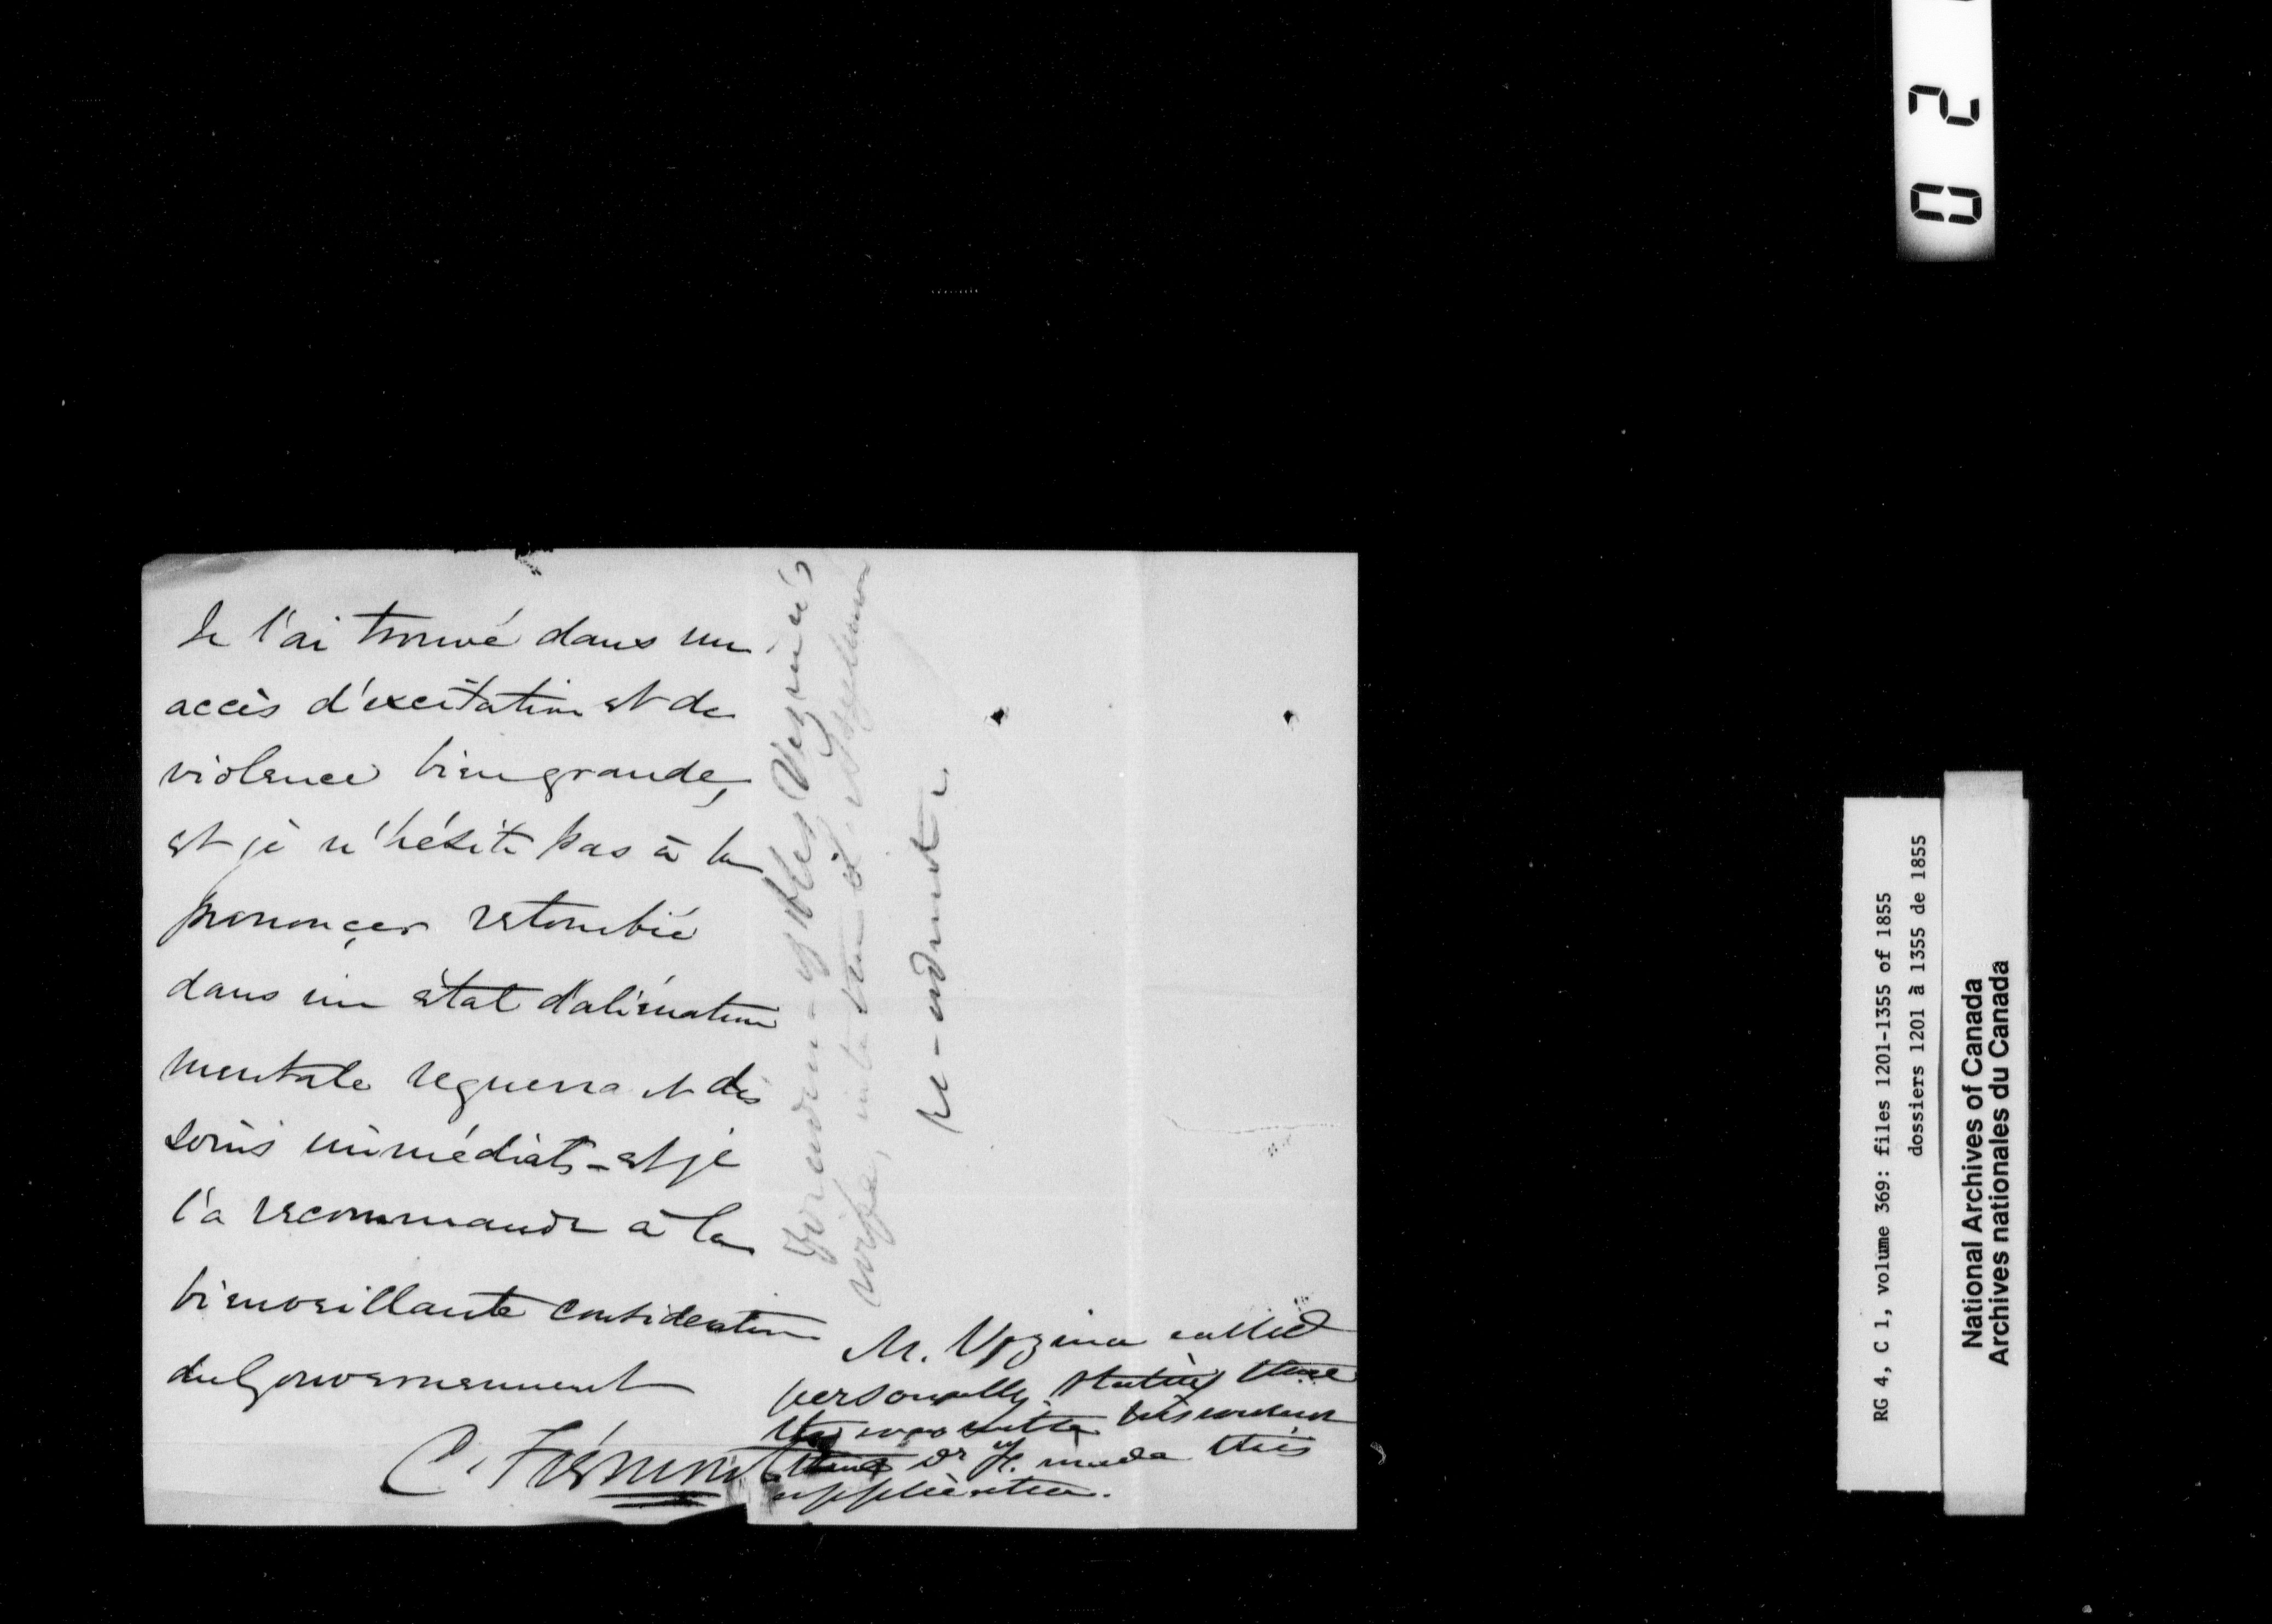 Je l'ai trouvé dans un
accès d'excitation et de
violence bien grande,
et je n'hésite pas à la
prononcer retombée
dans un état d'aliénation
mentale requerra et des
soins immédiats - et je
l'a recommande à la
bienveillante consideration
du Gouvernement
C. Frémont
Vezina's
wife,
re-admit
M. Vezina called
personally stating that
it was with his consent
that Dr F. made this
application.
0 2
RG 4, C 1, volume 369: files 1201-1355 of 1855
dossiers 1201 à 1355 de 1855
National Archives of Canada
Archives nationales du Canada